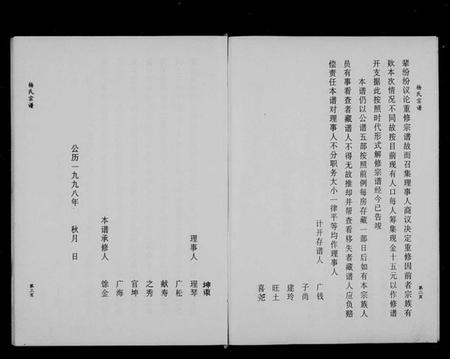 杨氏宗谱
辈纷纷议论重修宗谱故而召集理事人商议决定重修因前者宗族有
款本次情况不同故按目前现有人口每人筹集现金十五元以作修谱
开支据此按照时代形式解修宗谱经今已告竣
本谱仍以公谱五部按照前例每房存藏一部日后如有本宗族人
员有事看查者藏谱人不得无故推却并帮查看移失者藏谱人应负赔
偿责任本谱对理事人不分职务大小一律平等均作理事人
计开存谱人
广钱
子尚
建玲
旺土
喜尧
第二页
理事人
坤珼
理琴
广松
献寿
之秀
官坤
广海
馀金
本谱承修人
公历一九九八年 秋月 日
杨氏宗谱
第三页